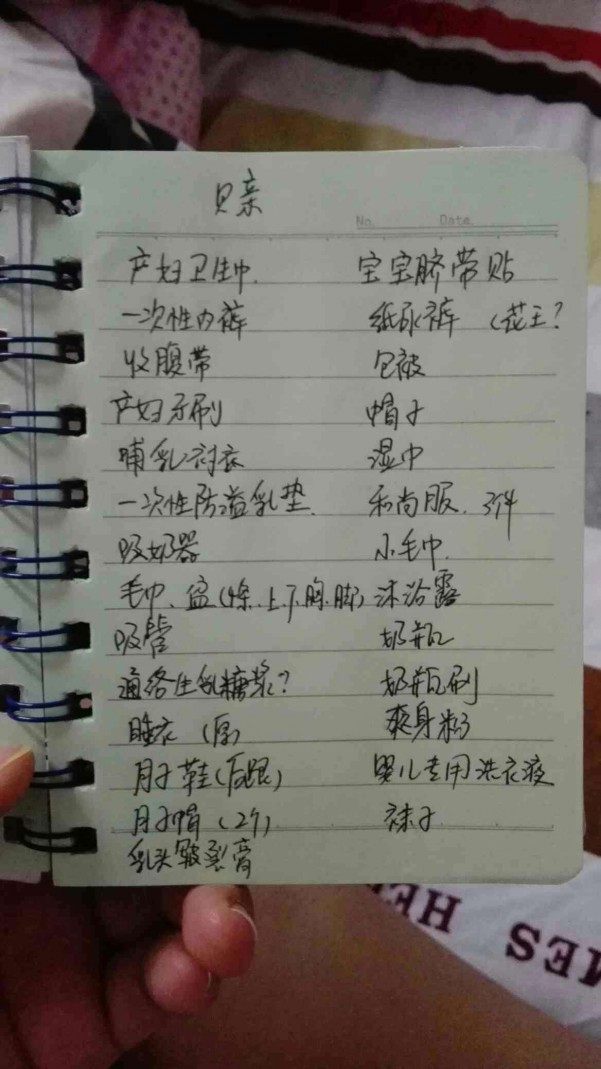 贝亲
No. Date
产妇卫生巾.
一次性内裤
收腹带
产妇牙刷
哺乳衬衣
一次性防溢乳垫.
吸奶器
毛巾、盆(上.下.胸.脚)
吸管
通络生乳糖浆?
睡衣 (厚)
月子鞋(后跟)
月子帽 (2个)
乳头皲裂膏
宝宝脐带贴
纸尿裤 (花王?
包被
帽子
湿巾
和尚服. 3件
小毛巾.
沐浴露
奶瓶
奶瓶刷
爽身粉
婴儿专用洗衣液
袜子